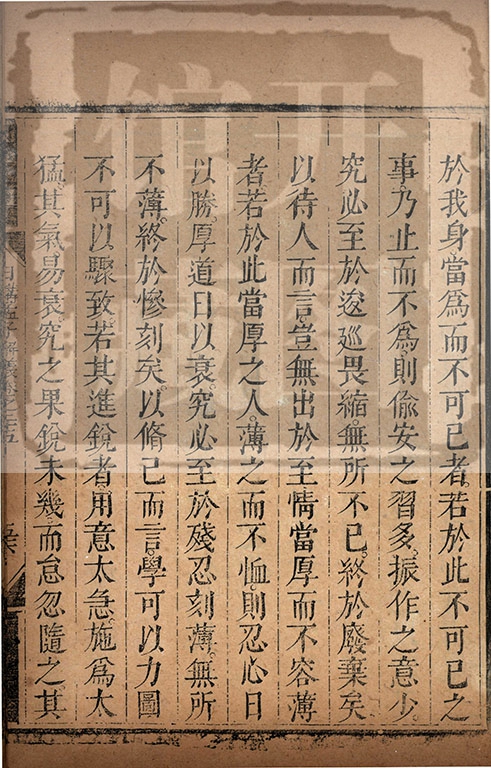 於我身當爲而不可已者。若於此不可已之
事。乃止而不爲。則偸安之習多。振作之意少。
究必至於逡廵畏縮。無所不已。終於廢棄矣
以待人而言。豈無出於至情當厚而不容薄
者。若於此當厚之人。薄之而不恤。則忍心日
以勝。厚道日以衰。究必至於殘忍刻薄。無所
不薄。終於慘刻矣。以脩己而言。學可以力圖
不可以驟致。若其進銳者。用意太急。施爲太
猛。其氣易衰。究之果銳未幾。而怠忽隨之。其
日講四書解義卷之二十五